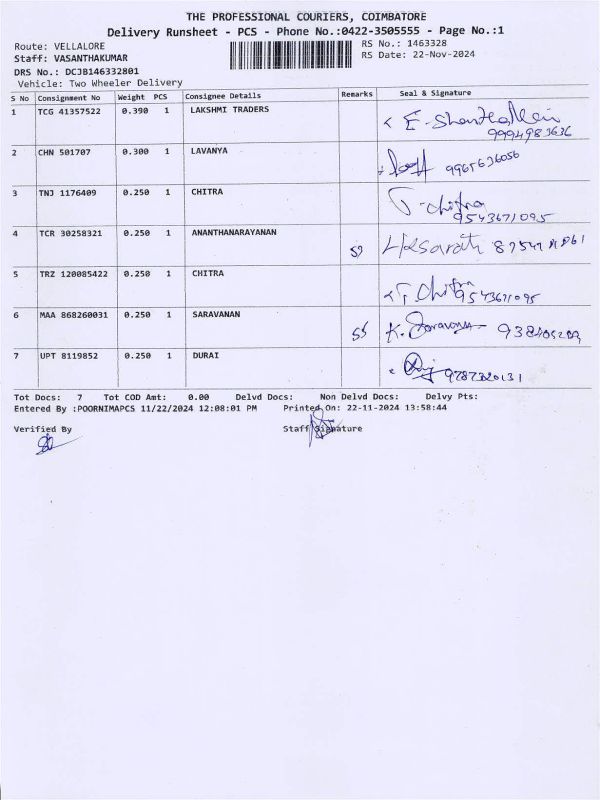 THE PROFESSIONAL COURIERS, COIMBATORE
Delivery Runsheet - PCS - Phone No.:0422-3505555 - Page No.:1
Route: VELLALORE
RS No.: 1463328
Staff: VASANTHAKUMAR
RS Date: 22-Nov-2024
DRS No.: DCJB146332801
Vehicle: Two Wheeler Delivery
S No Consignment No Weight PCS Consignee Details Remarks Seal & Signature
1 TCG 41357522 0.390 1 LAKSHMI TRADERS
9994983636
2 CHN 501707 0.300 1 LAVANYA
9965636056
3 TNJ 1176409 0.250 1 CHITRA T. Chitra
9543671095
4 TCR 30258321 0.250 1 ANANTHANARAYANAN
5 TRZ 120085422 0.250 1 CHITRA
T. Chitra 9543671095
6 MAA 868260031 0.250 1 SARAVANAN
K. Saravanan
7 UPT 8119852 0.250 1 DURAI
9787320131
Tot Docs: 7 Tot COD Amt: 0.00 Delvd Docs: Non Delvd Docs: Delvy Pts:
Entered By :POORNIMAPCS 11/22/2024 12:08:01 PM Printed On: 22-11-2024 13:58:44
Verified By Staff Signature